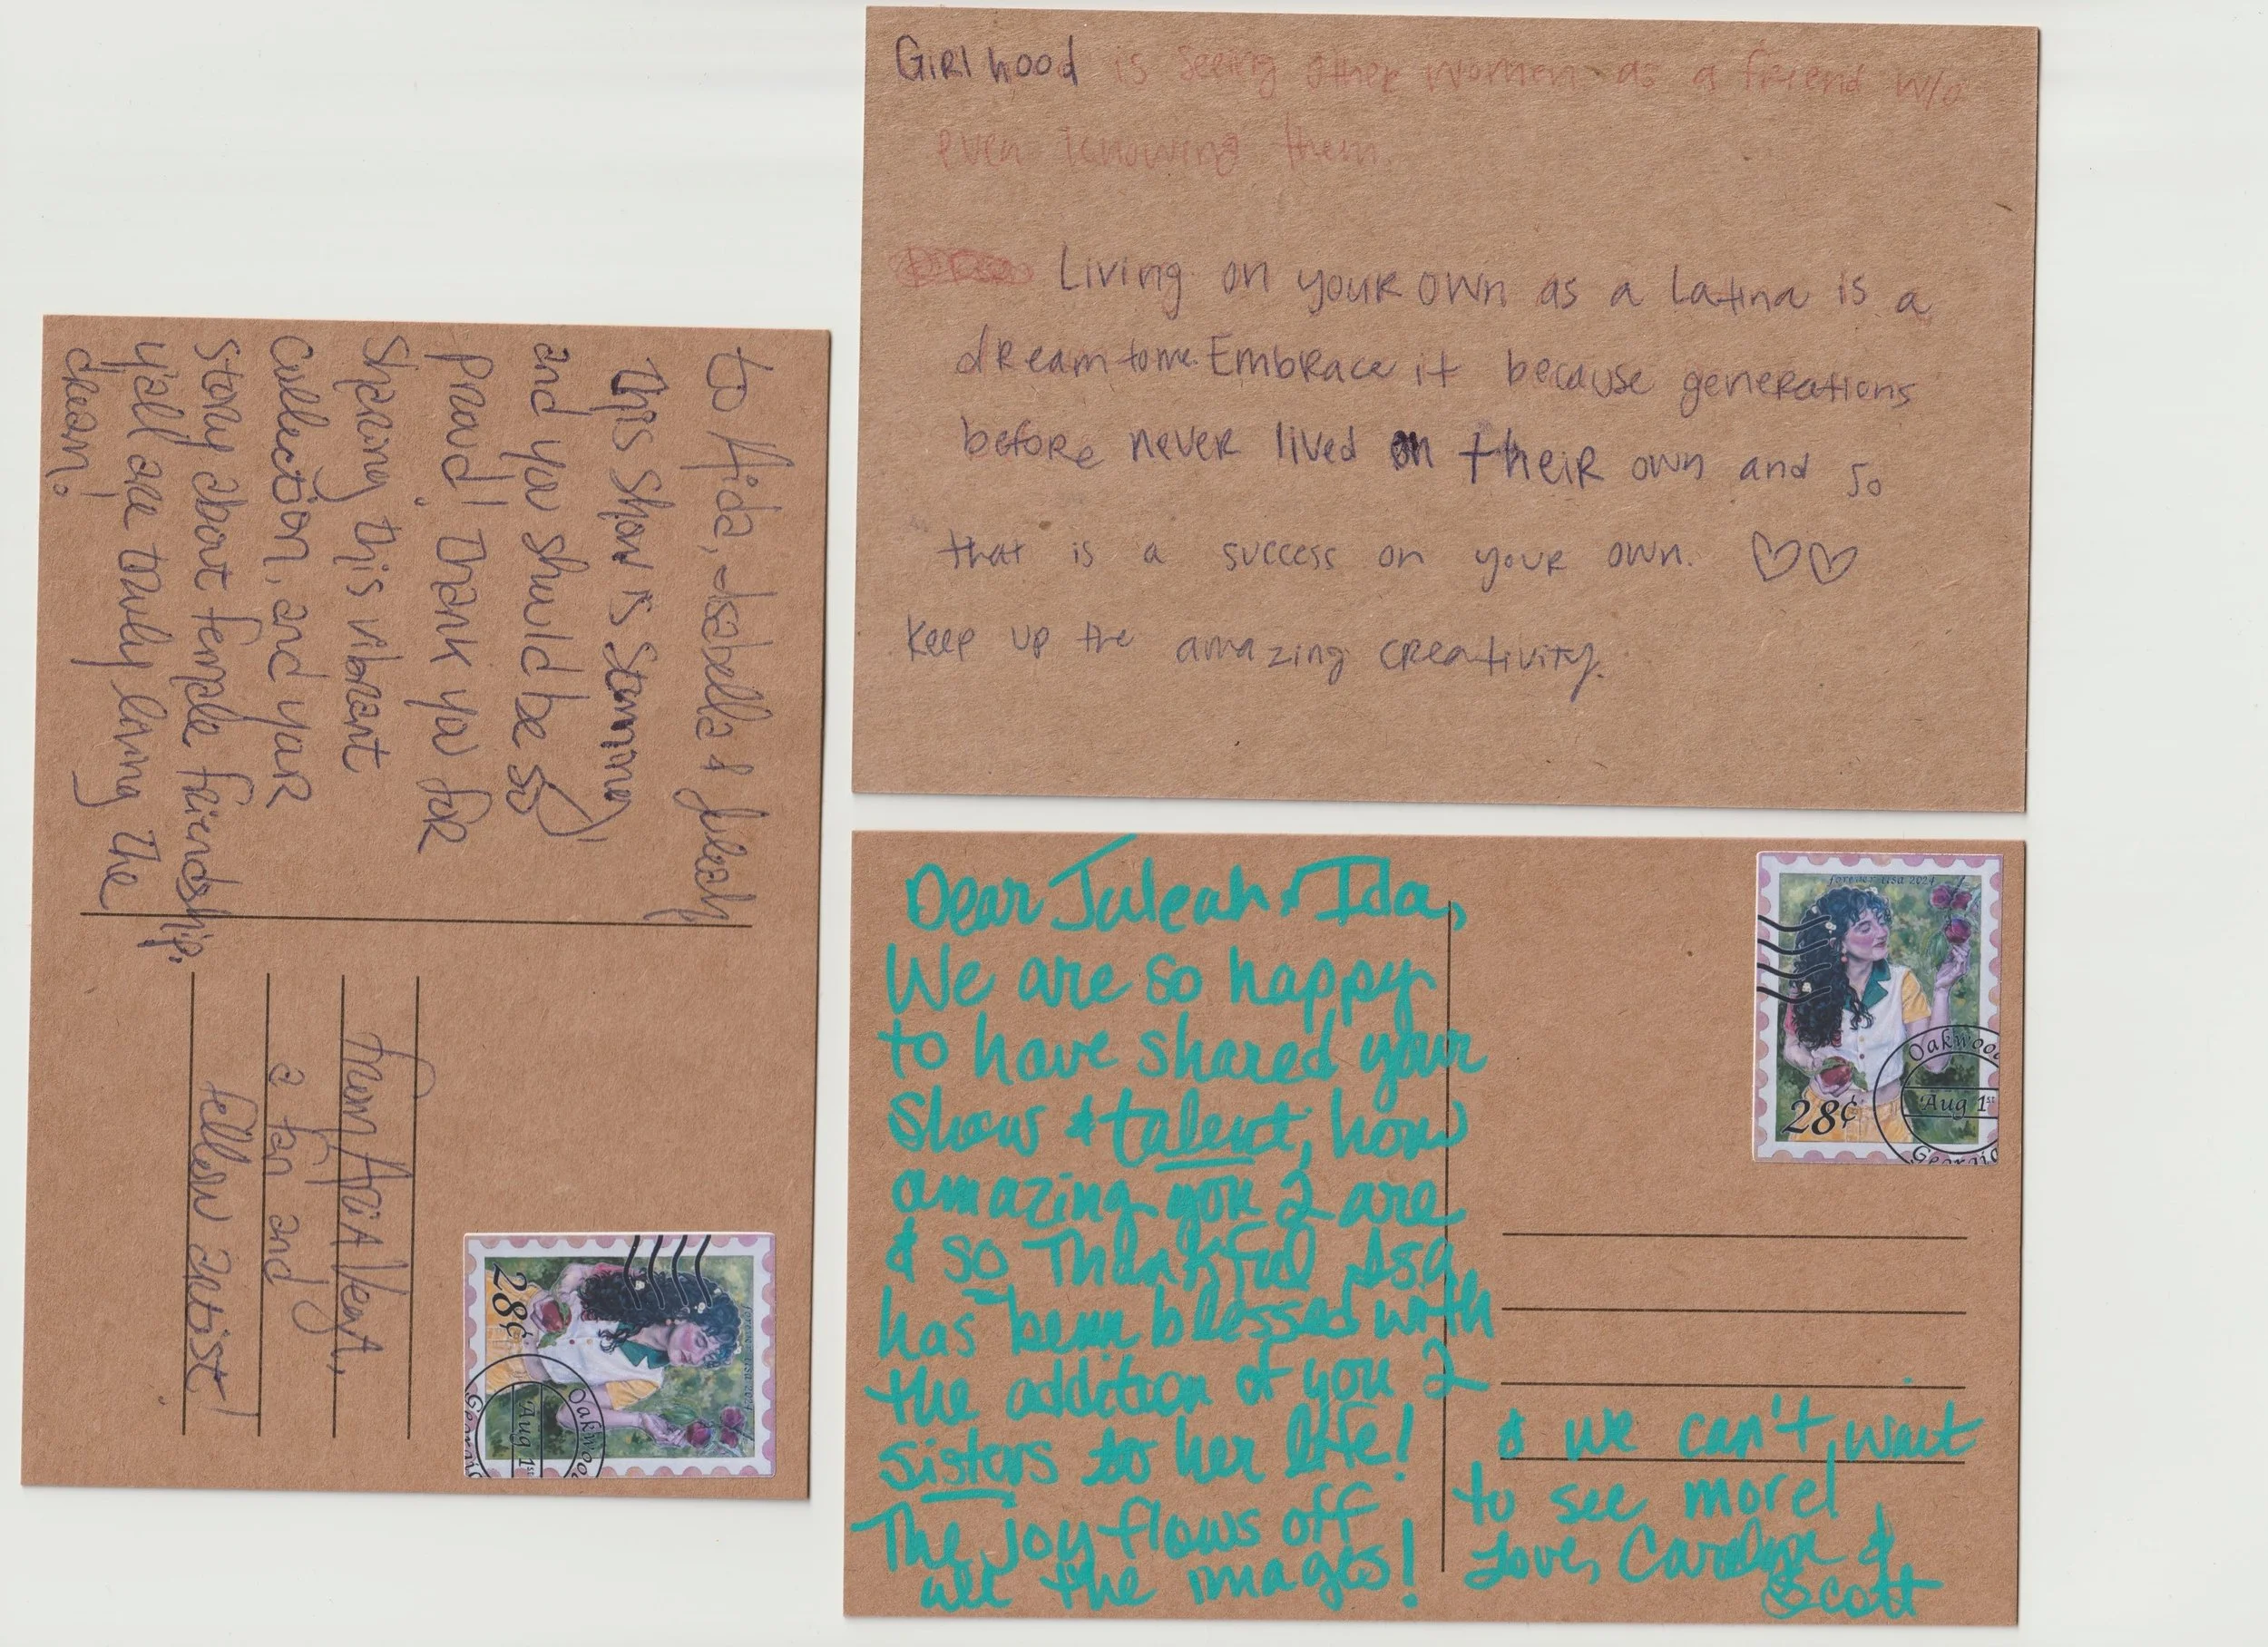 to Aida, Isabella & Juleah
This show is stunning
and you should be so
proud! Thank you for
sharing this vibrant
collection, and your
story about female friendship.
y'all are truly living the
dream!
a fan and
fellow artist!
forever usa 2024
28¢
Oakwoo
Aug 1st
Georgia
GiRlhood is seeing other women as a friend w/o
even knowing them.
Living on youR own as a Latina is a
dream to me. Embrace it because generations
before never lived on their own and so
that is a success on your own. ♡♡
Keep up the amazing creativity.
Dear Juleah & Ida,
We are so happy
to have shared your
show & talent, how
amazing you 2 are
& so Thankful Isa
has been blessed with
the addition of you 2
sisters to her life!
The joy flows off
all the images!
& we can't wait
to see more!
Love, Carolyn &
Scott
forever usa 2024
28¢
Oakwoo
Aug 1st
Georgia